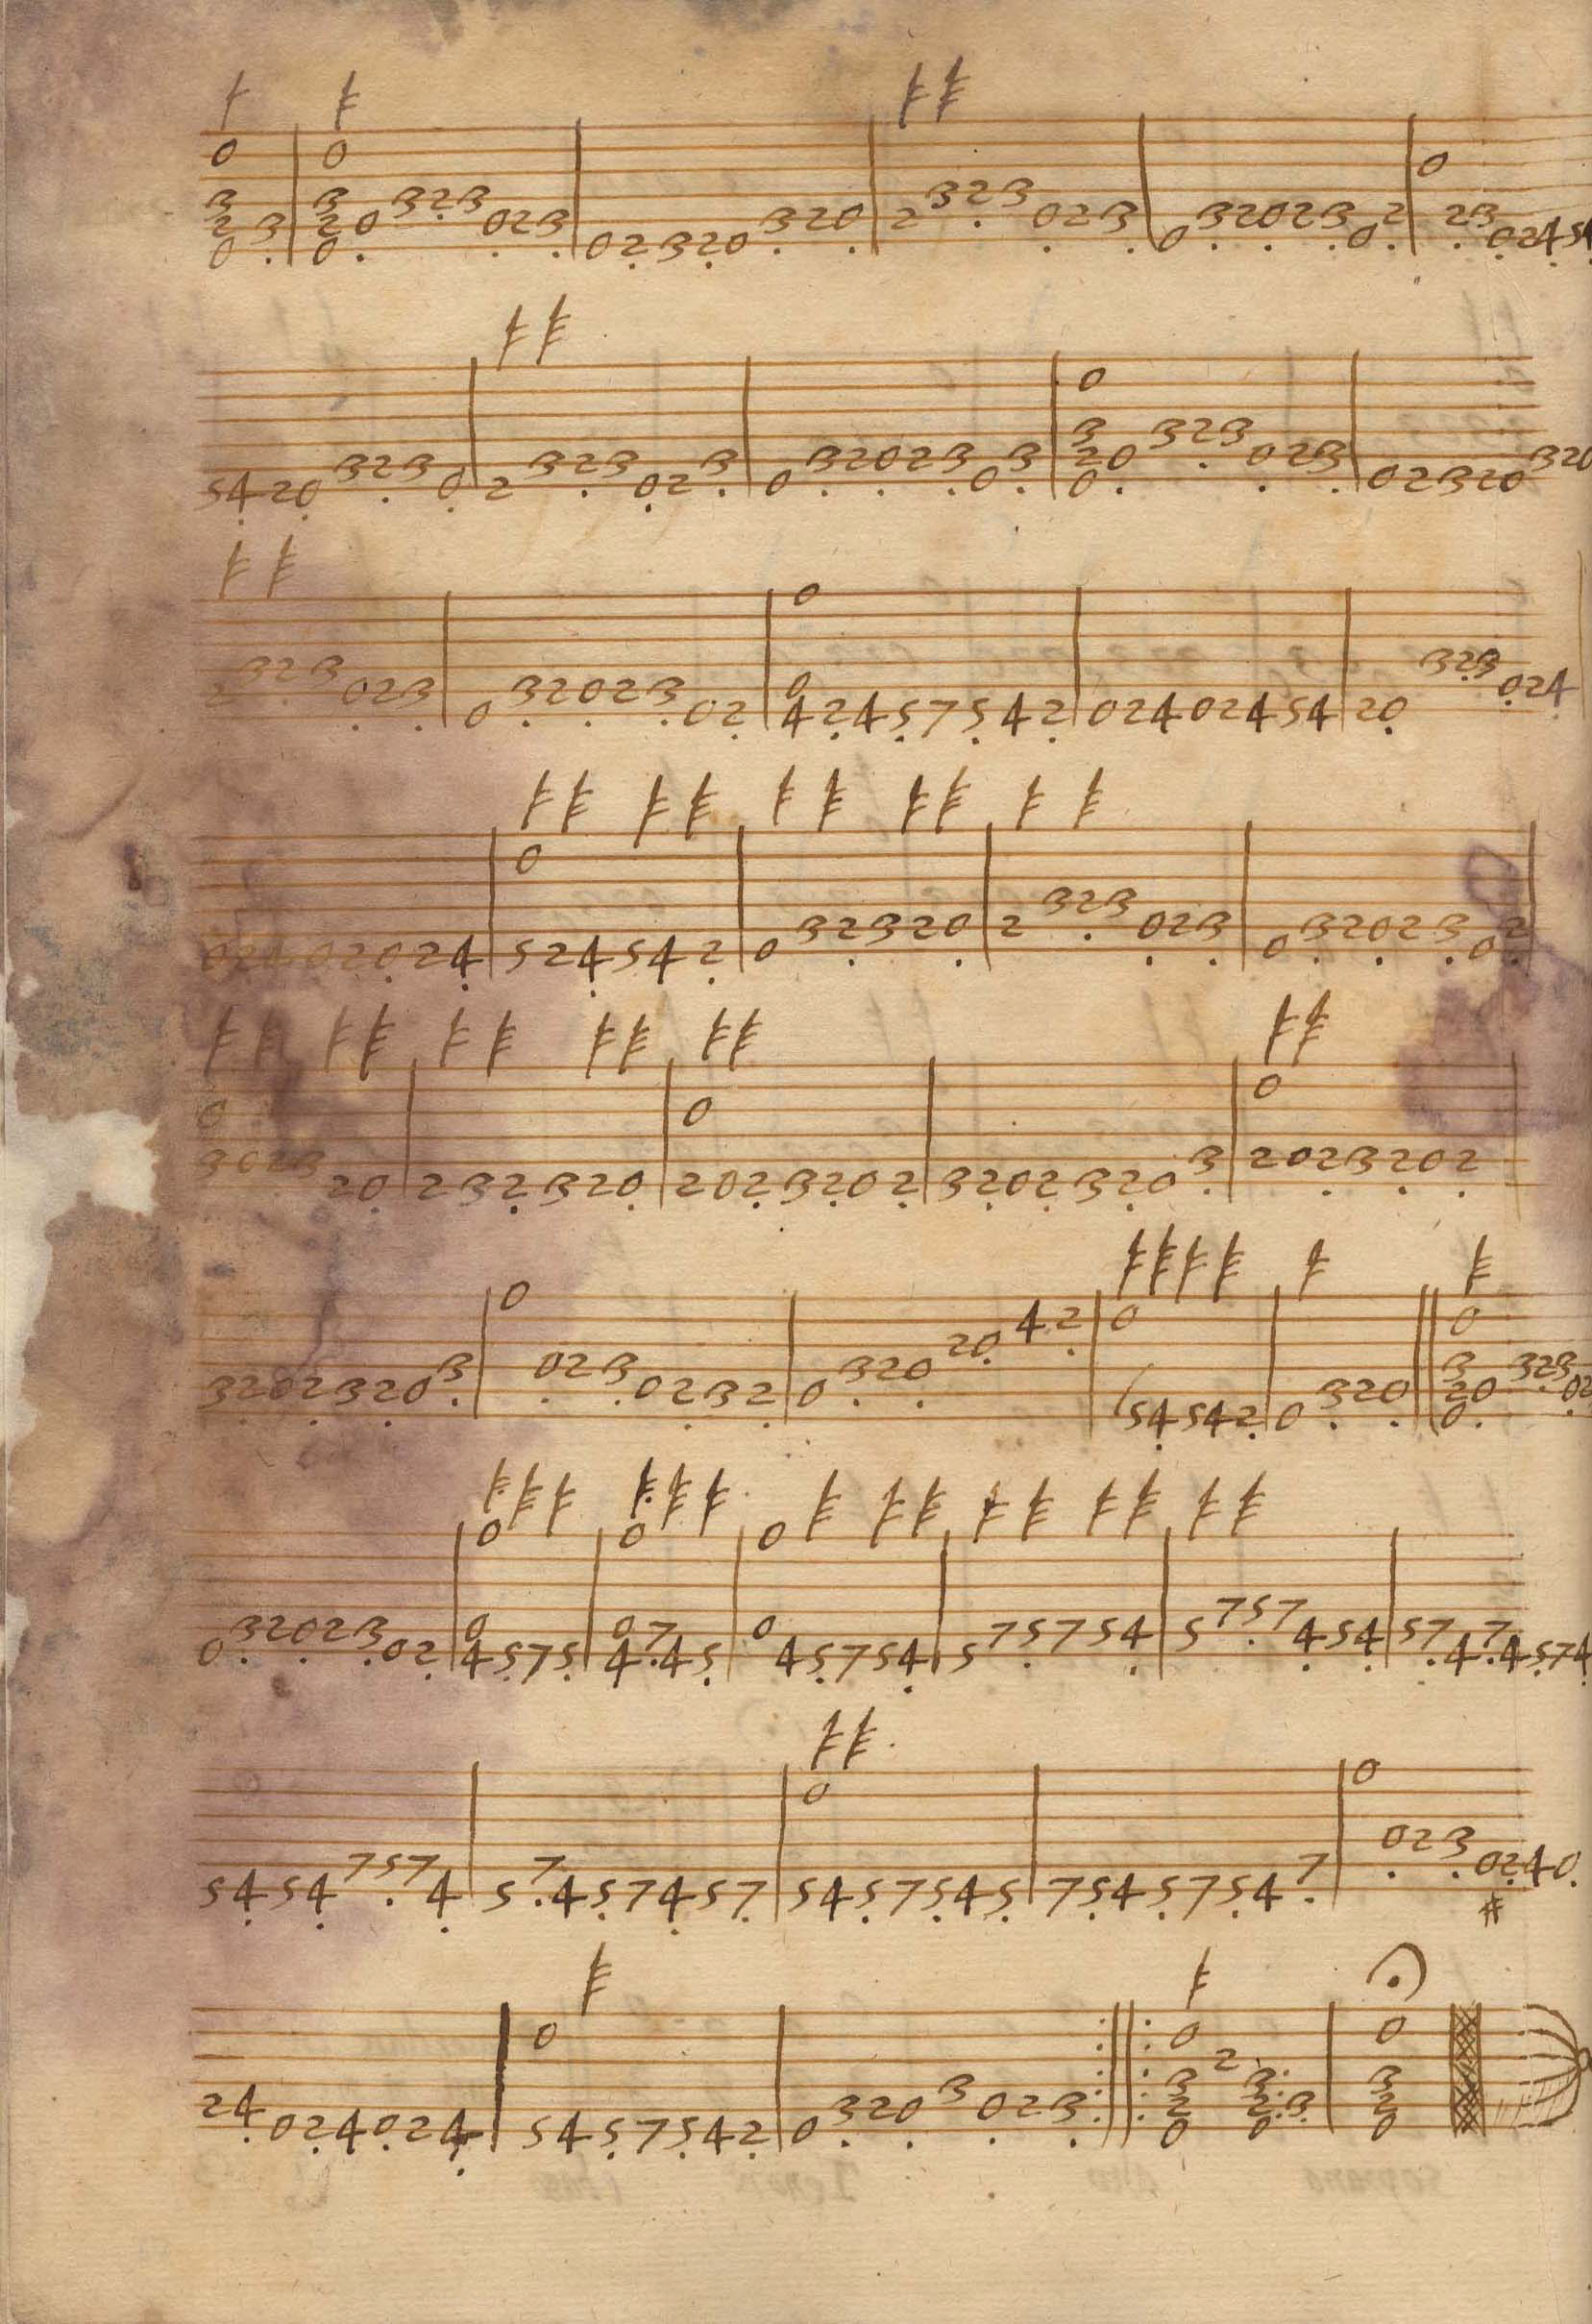 0 3 2 0 3 | 0 3 2 0 0 3 2 3 0 2 3 | 0 2 3 2 0 3 2 0 | 2 3 2 3 0 2 3 | 0 3 2 0 2 3 0 2 | 0 2 3 0 2 4 5 4
5 4 2 0 3 2 3 0 | 2 3 2 3 0 2 3 | 0 3 2 0 2 3 0 3 | 0 3 2 0 0 3 2 3 0 2 3 | 0 2 3 2 0 3 2 0
2 3 2 3 0 2 3 | 0 3 2 0 2 3 0 2 | 0 0 4 2 4 5 7 5 4 2 | 0 2 4 0 2 4 5 4 | 2 0 3 2 3 0 2 4
0 2 4 0 2 0 2 4 | 0 5 2 4 5 4 2 | 0 3 2 3 2 0 | 2 3 2 3 0 2 3 | 0 3 2 0 2 3 0 2
0 3 0 2 3 2 0 | 2 3 2 3 2 0 | 0 2 0 2 3 2 0 2 | 3 2 0 2 3 2 0 3 | 0 2 0 2 3 2 0 2
3 2 0 2 3 2 0 3 | 0 0 2 3 0 2 3 2 | 0 3 2 0 2 0 4 2 | 0 5 4 5 4 2 | 0 3 2 0 || 0 3 2 0 0 3 2 3 0 2
0 3 2 0 2 3 0 2 | 0 0 4 5 7 5 | 0 0 4 7 4 5 | 0 0 4 5 7 5 4 | 5 7 5 7 5 4 | 5 7 5 7 4 5 4 | 5 7 4 7 4 5 7 4
5 4 5 4 7 5 7 4 | 5 7 4 5 7 4 5 7 | 0 5 4 5 7 5 4 5 | 7 5 4 5 7 5 4 7 | 0 0 2 3 0 2 4 0 #
2 4 0 2 4 0 2 4 | 0 5 4 5 7 5 4 2 | 0 3 2 0 3 0 2 3 :||: 0 3 2 0 2 3 2 0 3 | 0 3 2 0